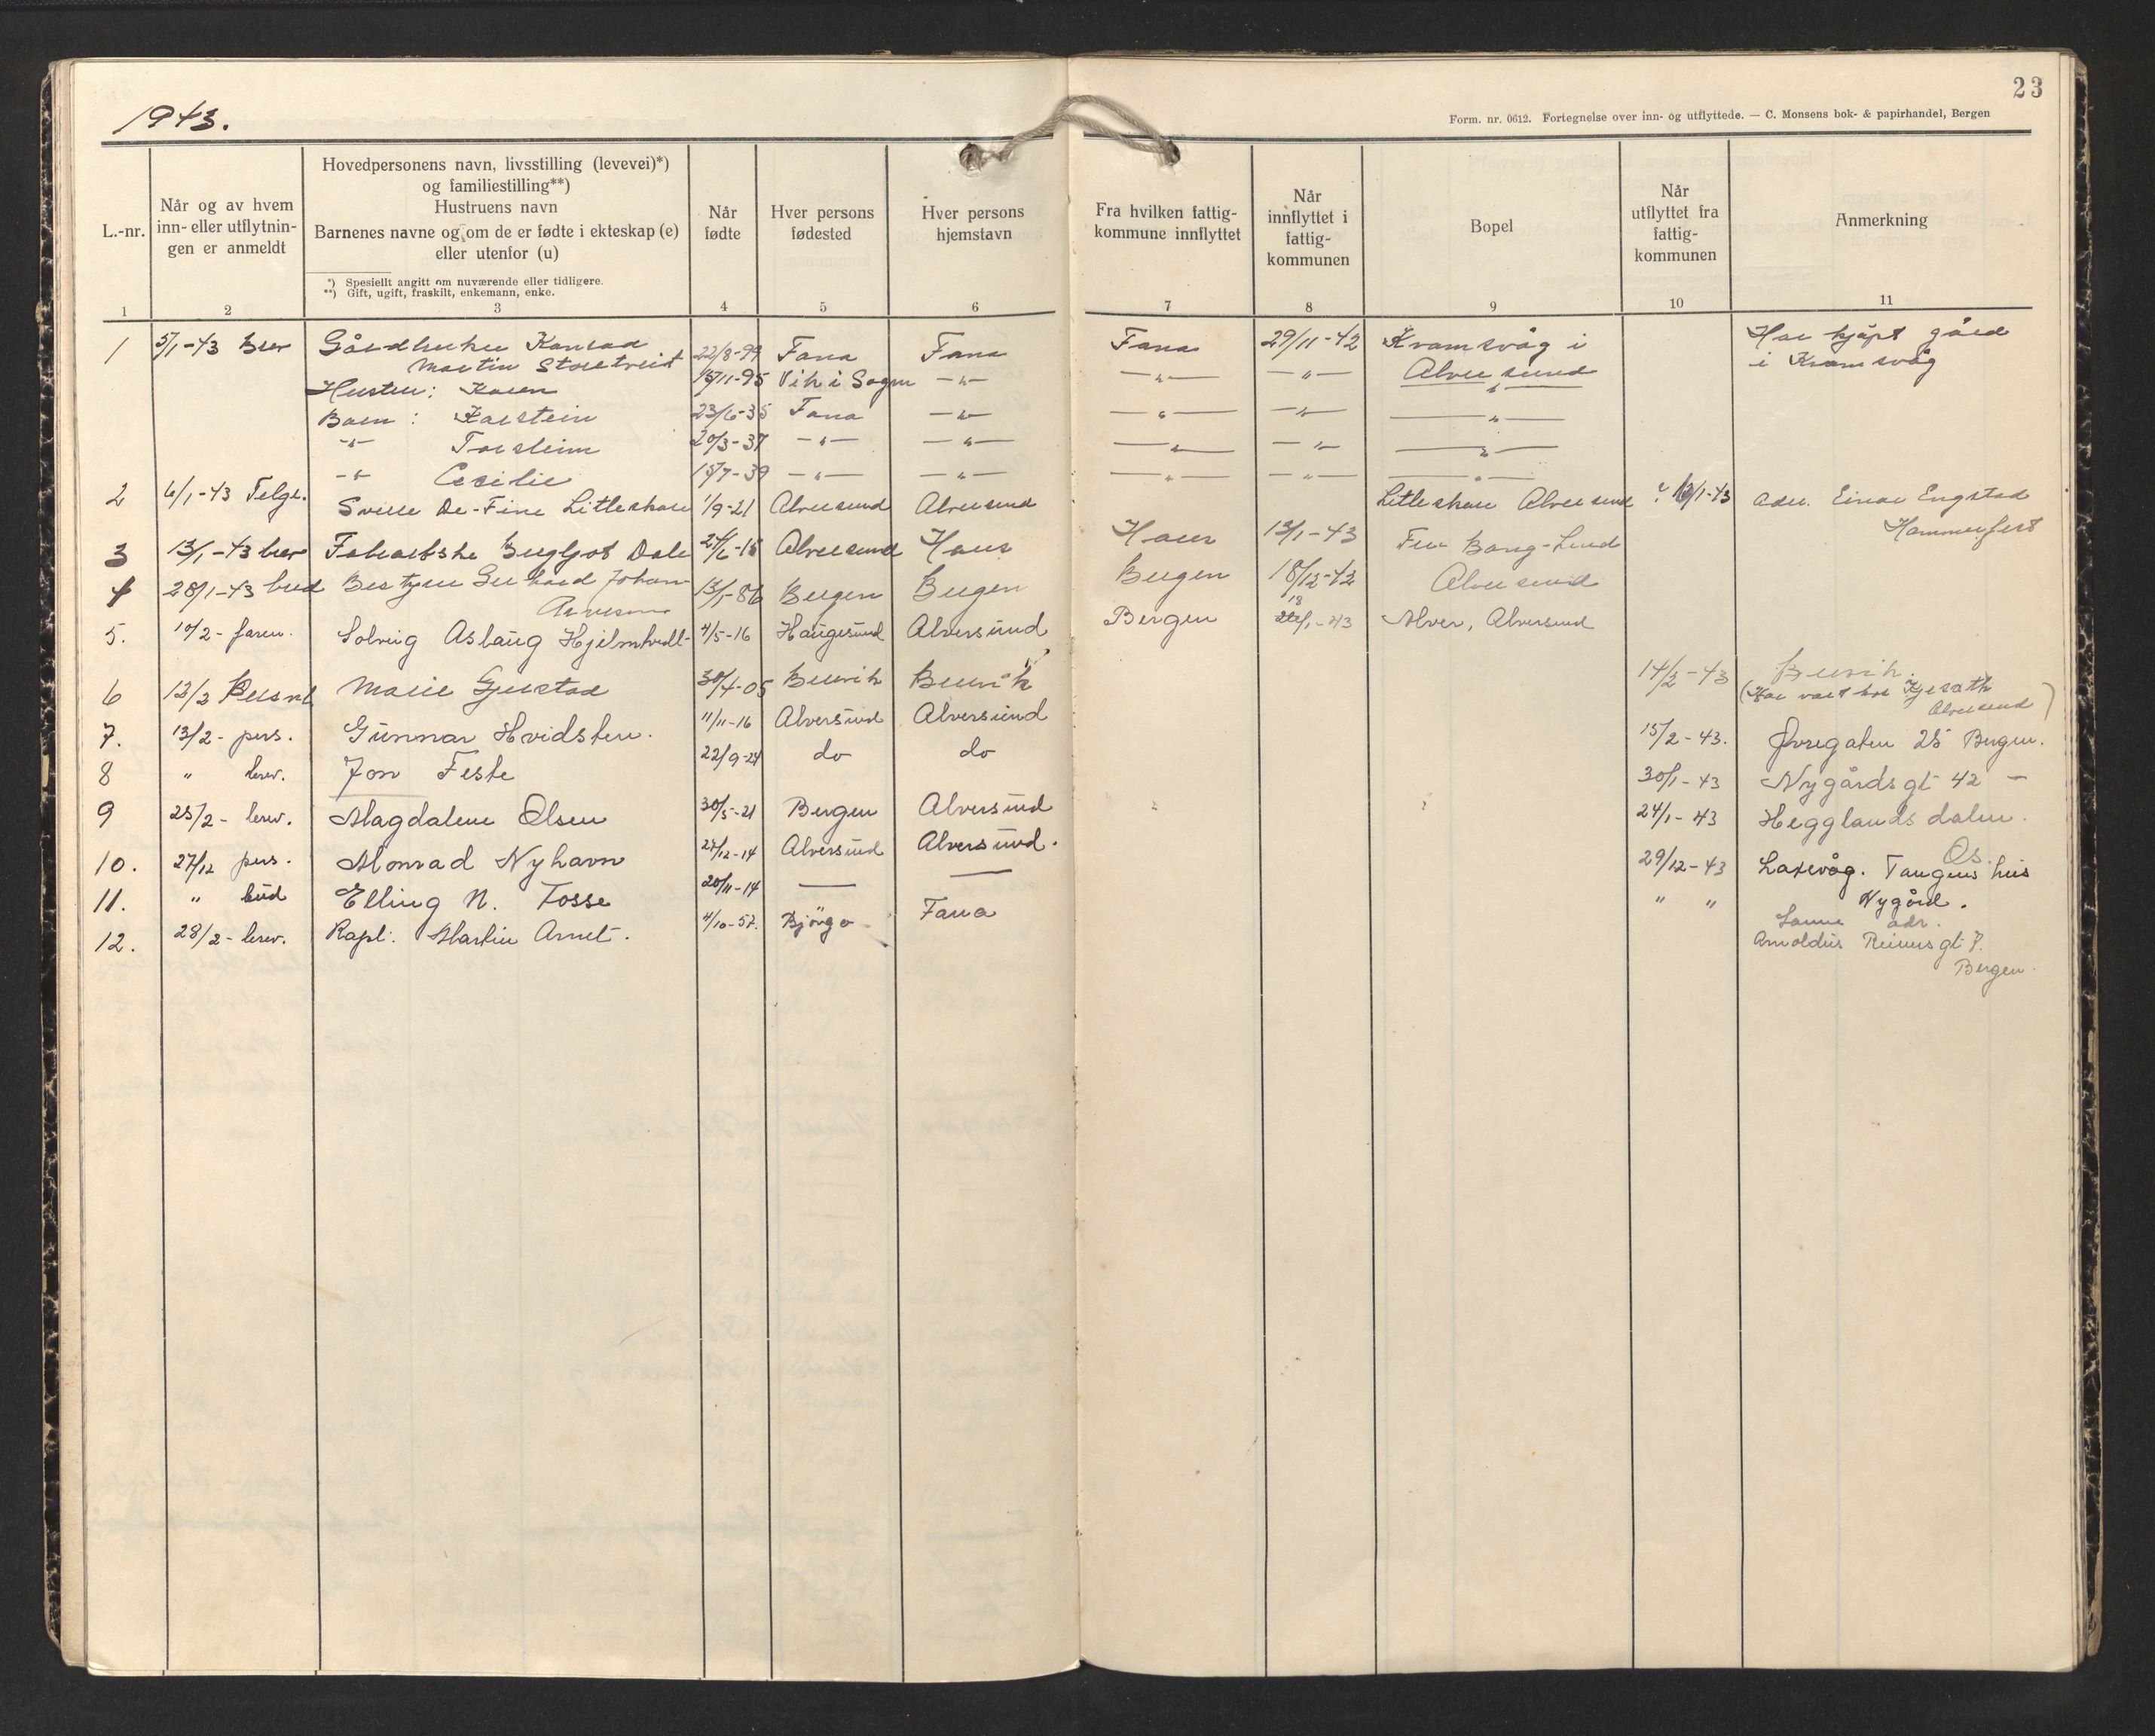 1943.
23
Form. nr. 0612. Fortegnelse over inn- og utflyttede. — C. Monsens bok- & papirhandel, Bergen
L.-nr.
Når og av hvem
inn- eller utflytnin-
gen er anmeldt
Hovedpersonens navn, livsstilling (levevei)*)
og familiestilling**)
Hustruens navn
Barnenes navne og om de er fødte i ekteskap (e)
eller utenfor (u)
*) Spesiellt angitt om nuværende eller tidligere.
**) Gift, ugift, fraskilt, enkemann, enke.
Når
fødte
Hver persons
fødested
Hver persons
hjemstavn
Fra hvilken fattig-
kommune innflyttet
Når
innflyttet i
fattig-
kommunen
Bopel
Når
utflyttet fra
fattig-
kommunen
Anmerkning
1 2 3 4 5 6 7 8 9 10 11
1 5/1-43 brev Gårdbruker Konrad 22/8-99 Fana Fana Fana 29/11-42 Kvamsvåg i Har kjøpt gård
Martin Storetveit i Kvamsvåg
Hustru: Karen 15/11-95 Vik i Sogn -"- -"- -"- Alversund
Barn: Karstein 23/6-35 Fana -"- -"- -"- -"-
-"- Torstein 20/3-37 -"- -"- -"- -"- -"-
-"- Cecilie 15/7-39 -"- -"- -"- -"- -"-
2 6/1-43 Telgr. Sverre De-Fine Litleskare 1/9-21 Alversund Alversund Litleskare Alversund 12/1-43 adr. Einar Engstad
Hammerfest
3 13/1-43 brev Fabrikarbske Bergljot Dale 24/6-18 Alversund Haus Haus 13/1-43 Fru Bang-Lund
4 28/1-43 bud Bestyrer Gerhard Johan 13/1-86 Bergen Bergen Bergen 18/12-42 Alversund
Arnesen
5. 10/2- faren. Solveig Aslaug Hjelmtveit- 4/5-16 Haugesund Alversund Bergen 18/1-43 Alver, Alversund
6 12/2 Marie Gjerstad 30/4-05 Bruvik Bruvik 14/2-43 Bruvik.
(Har vært hos Kjersath
Alversund)
7. 13/2- pers. Gunnar Hvidsten. 11/11-16 Alversund Alversund 15/2-43. Øvregaten 25 Bergen.
8 " brev. Jon Feste 22/9-24 do do 30/1-43 Nygårdsgt 42 —
9 25/2- brev. Magdalene Olsen 30/5-21 Bergen Alversund 24/1-43 Hegglandsdalen.
Os.
10. 27/12 pers. Monrad Nyhavn 27/12-14 Alversund Alversund. 29/12-43 Laxevåg. Tangens hus
Nygård.
11. " bud Elling N. Fosse 20/11-14 — — " " Samme adr.
12. 28/2- brev. Kapt. Martin Arnet. 4/10-57. Bjørgo Fana Arnoldus Reimersgt 7.
Bergen.